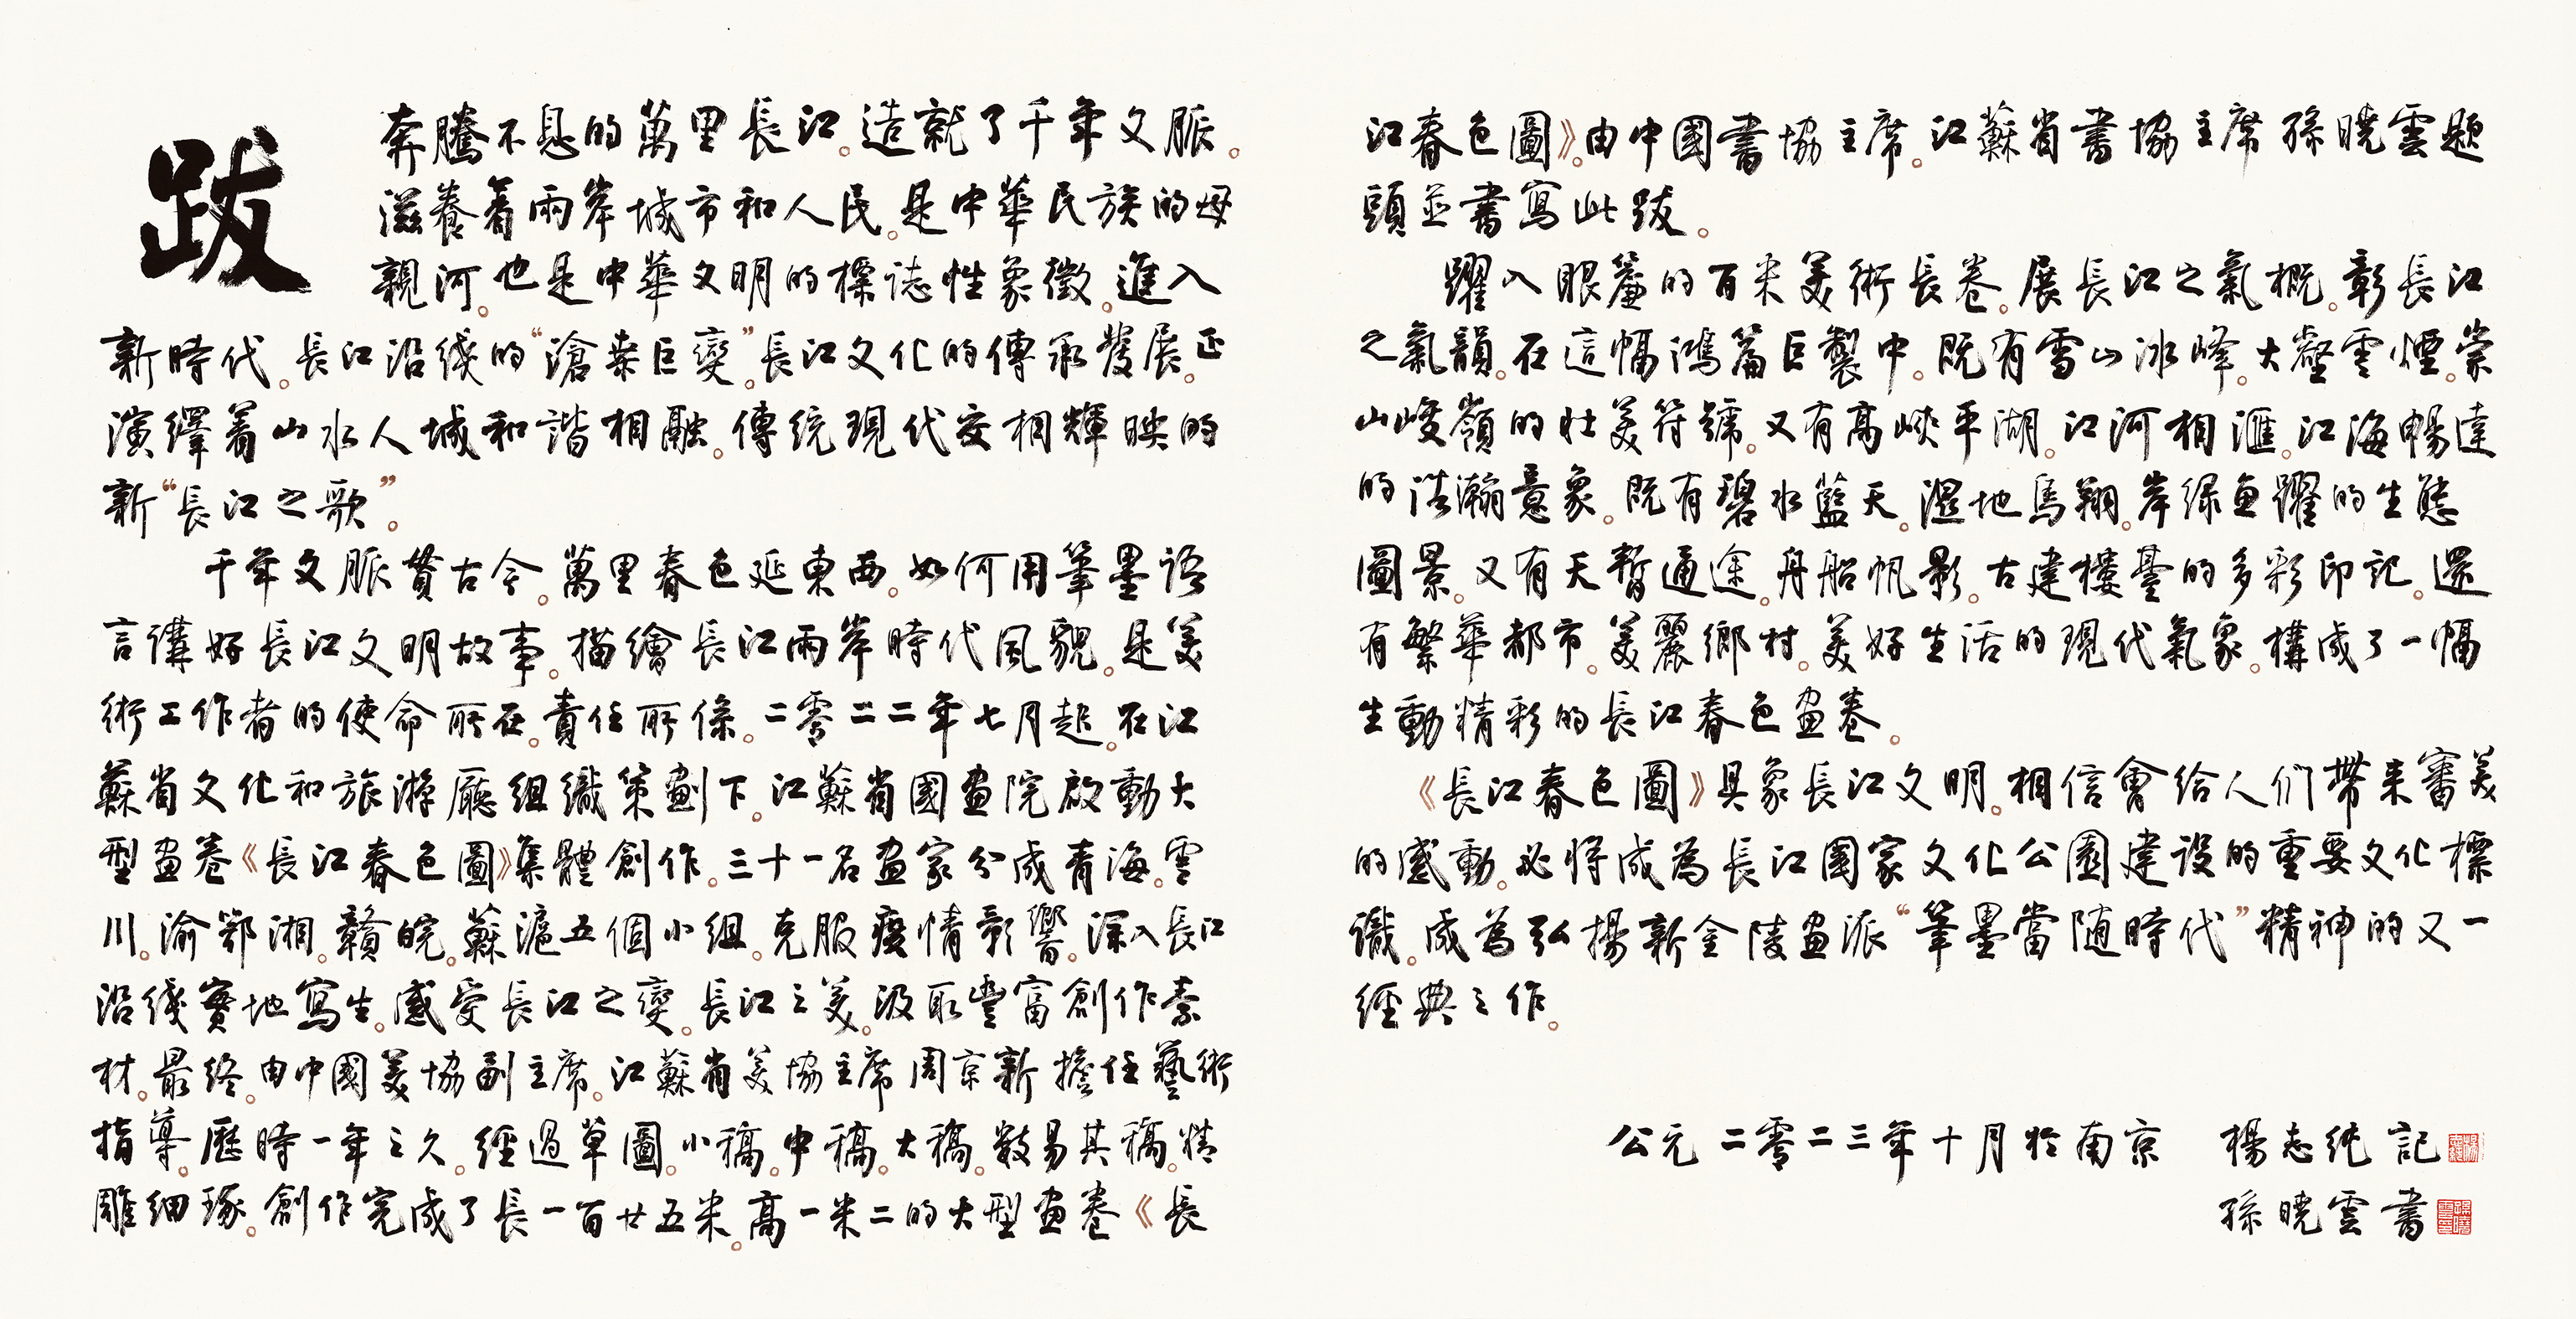 跋
奔騰不息的萬里長江。造就了千年文脈。
滋養着兩岸城市和人民。是中華民族的母
親河。也是中華文明的標誌性象徵。進入
新時代。長江沿綫的“滄桑巨變”。長江文化的傳承發展。正
演繹着山水人城和諧相融。傳統現代交相輝映的
新“長江之歌”。
千年文脈貫古今。萬里春色延東西。如何用筆墨語
言講好長江文明故事。描繪長江兩岸時代風貌。是美
術工作者的使命所在。責任所係。二零二二年七月起。在江
蘇省文化和旅游廳組織策劃下。江蘇省國畫院啟動大
型畫卷《長江春色圖》集體創作。三十一名畫家分成青海。雲
川。渝鄂湘。贛皖。蘇滬五個小組。克服疫情影響。深入長江
沿綫實地寫生。感受長江之變。長江之美。汲取豐富創作素
材。最終。由中國美協副主席。江蘇省美協主席周京新擔任藝術
指導。歷時一年之久。經過草圖。小稿。中稿。大稿。數易其稿。精
雕細琢。創作完成了長一百廿五米。高一米二的大型畫卷《長
江春色圖》。由中國書協主席。江蘇省書協主席孫曉雲題
頭並書寫此跋。
躍入眼簾的百米美術長卷。展長江之氣概。彰長江
之氣韻。在這幅鴻篇巨製中。既有雪山冰峰。大壑雲煙。崇
山峻嶺的壯美符號。又有高峽平湖。江河相匯。江海暢達
的浩瀚意象。既有碧水藍天。濕地鳥翔。岸綠魚躍的生態
圖景。又有天塹通途。舟船帆影。古建樓臺的多彩印記。還
有繁華都市。美麗鄉村。美好生活的現代氣象。構成了一幅
生動精彩的長江春色畫卷。
《長江春色圖》具象長江文明。相信會給人们帶来審美
的感動。必将成為長江國家文化公園建設的重要文化標
識。成為弘揚新金陵畫派“筆墨當随時代”精神的又一
經典之作。
公元二零二三年十月於南京 楊志純記
孫曉雲書